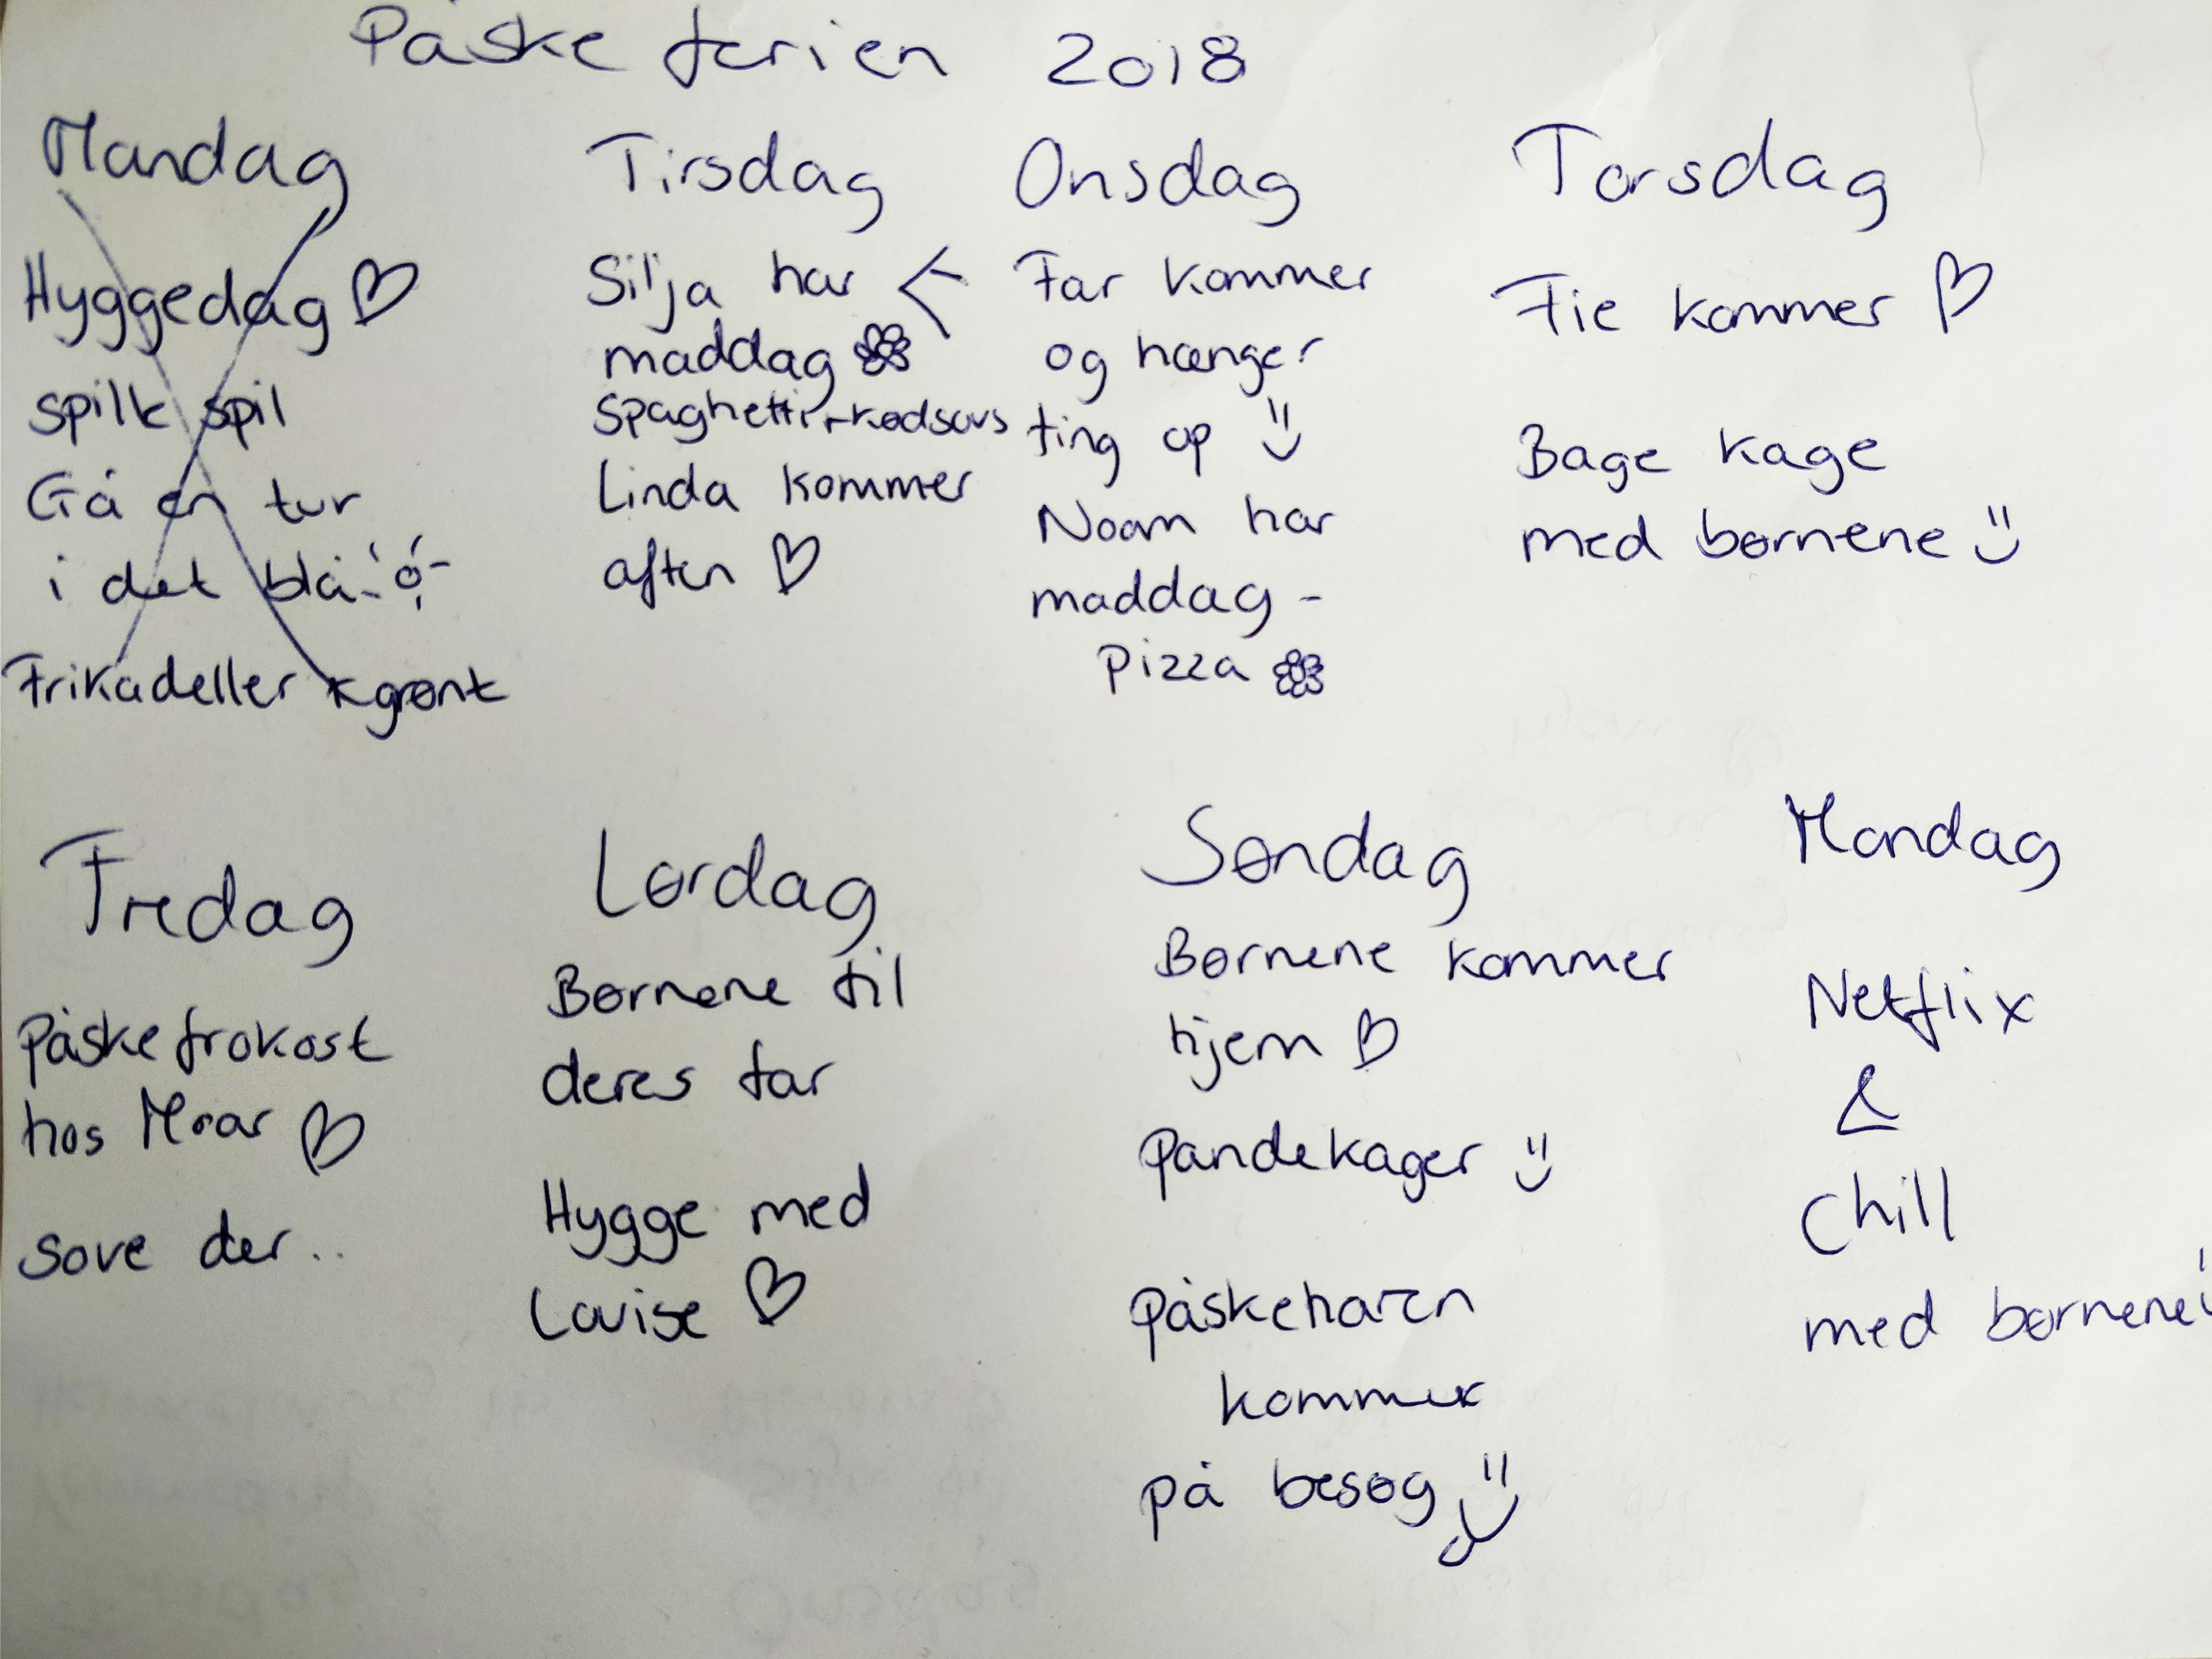 Påske ferien 2018
Mandag
Hyggedag ♡
spille spil
Gå en tur
i det blå
Frikadeller + grønt
Tirsdag
Silja har
maddag
Spaghetti + kødsovs
Linda kommer
aften ♡
Onsdag
Far kommer
og hænger
ting op
Noam har
maddag -
pizza
Torsdag
Fie kommer ♡
Bage kage
med børnene
Fredag
Påskefrokost
hos ♡
sove der..
Lørdag
Børnene til
deres far
Hygge med
Louise ♡
Søndag
Børnene kommer
hjem ♡
Pandekager
Påskeharen
kommer
på besøg
Mandag
Netflix
&
Chill
med børnene